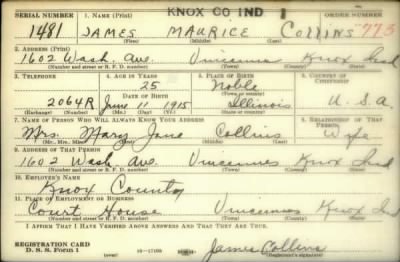 KNOX CO IND 1
SERIAL NUMBER 1. NAME (Print) ORDER NUMBER
1481 JAMES MAURICE COLLINS 775
(First) (Middle) (Last)
2. ADDRESS (Print)
1602 Wash. Ave. Vincennes Knox Ind
(Number and street or R. F. D. number) (Town) (County) (State)
3. TELEPHONE 4. AGE IN YEARS 5. PLACE OF BIRTH 6. COUNTRY OF CITIZENSHIP
25 Noble
DATE OF BIRTH (Town or county)
2064R June 11 1915 Illinois U.S.A
(Exchange) (Number) (Mo.) (Day) (Yr.) (State or country)
7. NAME OF PERSON WHO WILL ALWAYS KNOW YOUR ADDRESS 8. RELATIONSHIP OF THAT PERSON
Mrs. Mary Jane Collins Wife
(Mr., Mrs., Miss) (First) (Middle) (Last)
9. ADDRESS OF THAT PERSON
1602 Wash Ave Vincennes Knox Ind
(Number and street or R. F. D. number) (Town) (County) (State)
10. EMPLOYER'S NAME
Knox County
11. PLACE OF EMPLOYMENT OR BUSINESS
Court House Vincennes Knox Ind
(Number and street or R. F. D. number) (Town) (County) (State)
I AFFIRM THAT I HAVE VERIFIED ABOVE ANSWERS AND THAT THEY ARE TRUE.
REGISTRATION CARD
D. S. S. Form 1 James Collins
(Registrant's signature)